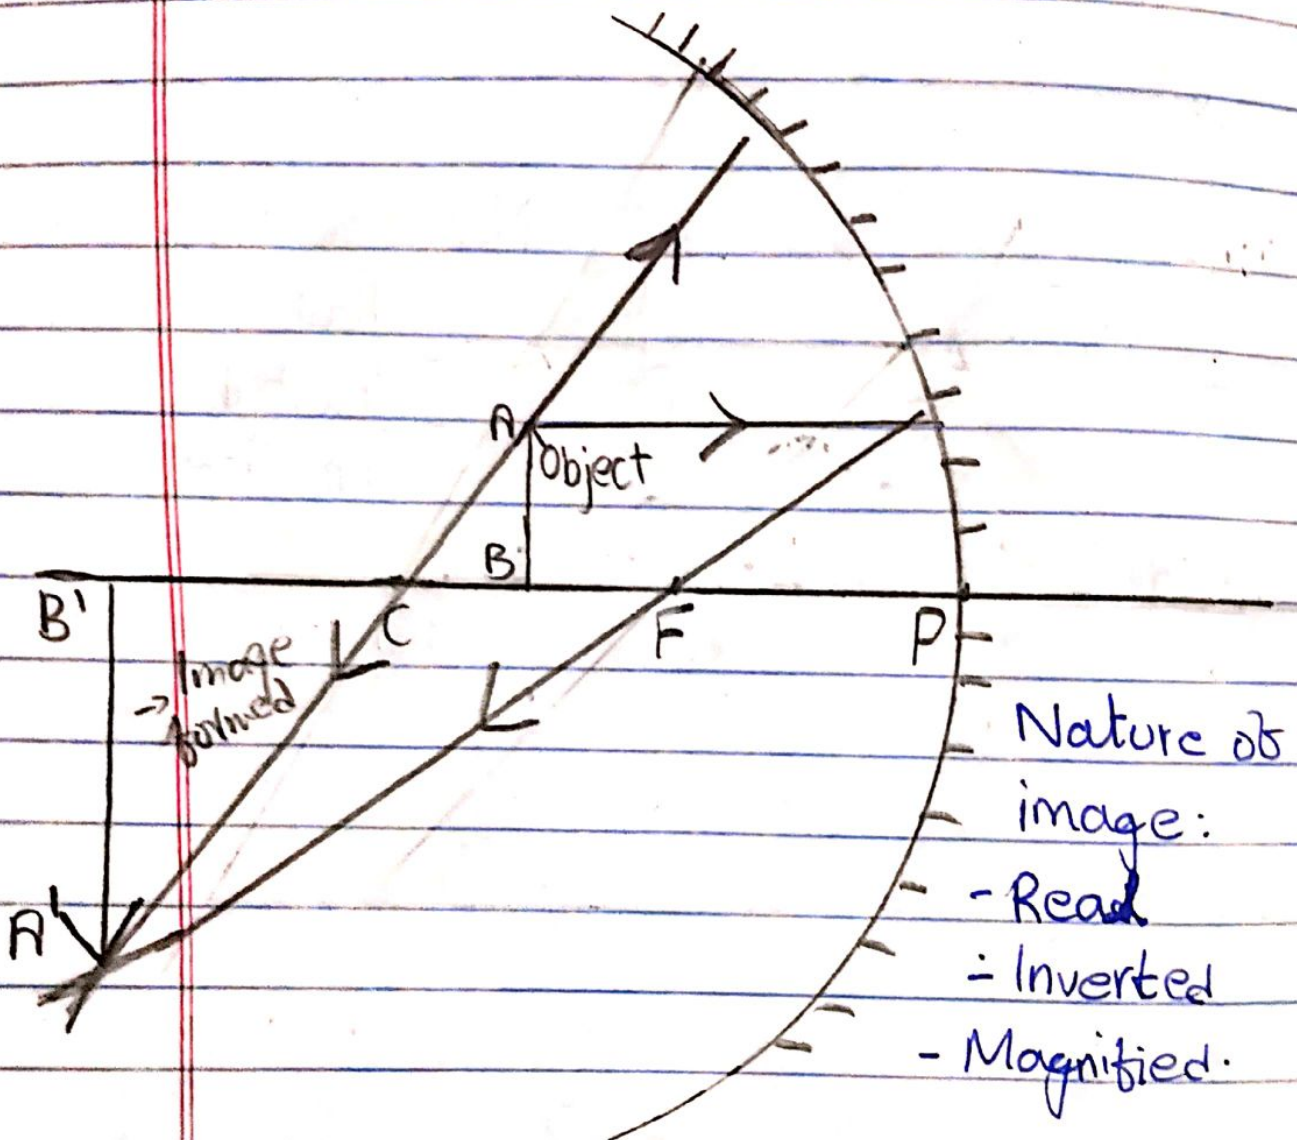 A
Object
B
B'
C
F
P
→ Image
formed
A'
Nature of
image:
- Real
- Inverted
- Magnified.